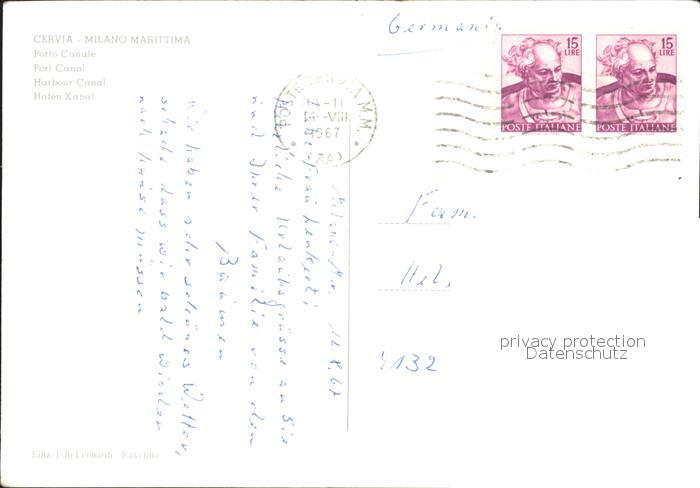 CERVIA - MILANO MARITTIMA
Porto Canale
Port Canal
Harbour Canal
Hafen Kanal
Germania
15 LIRE
POSTE ITALIANE
15 LIRE
POSTE ITALIANE
POSTE CERVIA M.M.
-11
VIII
1967
(RA)
Milano M. 12.8.67
Liebe Frau Lenkert!
Herzliche Urlaubsgrüsse an Sie
und Ihrer Familie von den
Bäumen
Wir haben sehr schönes Wetter,
schade dass wir bald wieder
nach hause müssen
Fam.
Hel.
4132
privacy protection
Datenschutz
Ediz. F.lli Leonardi - Ravenna